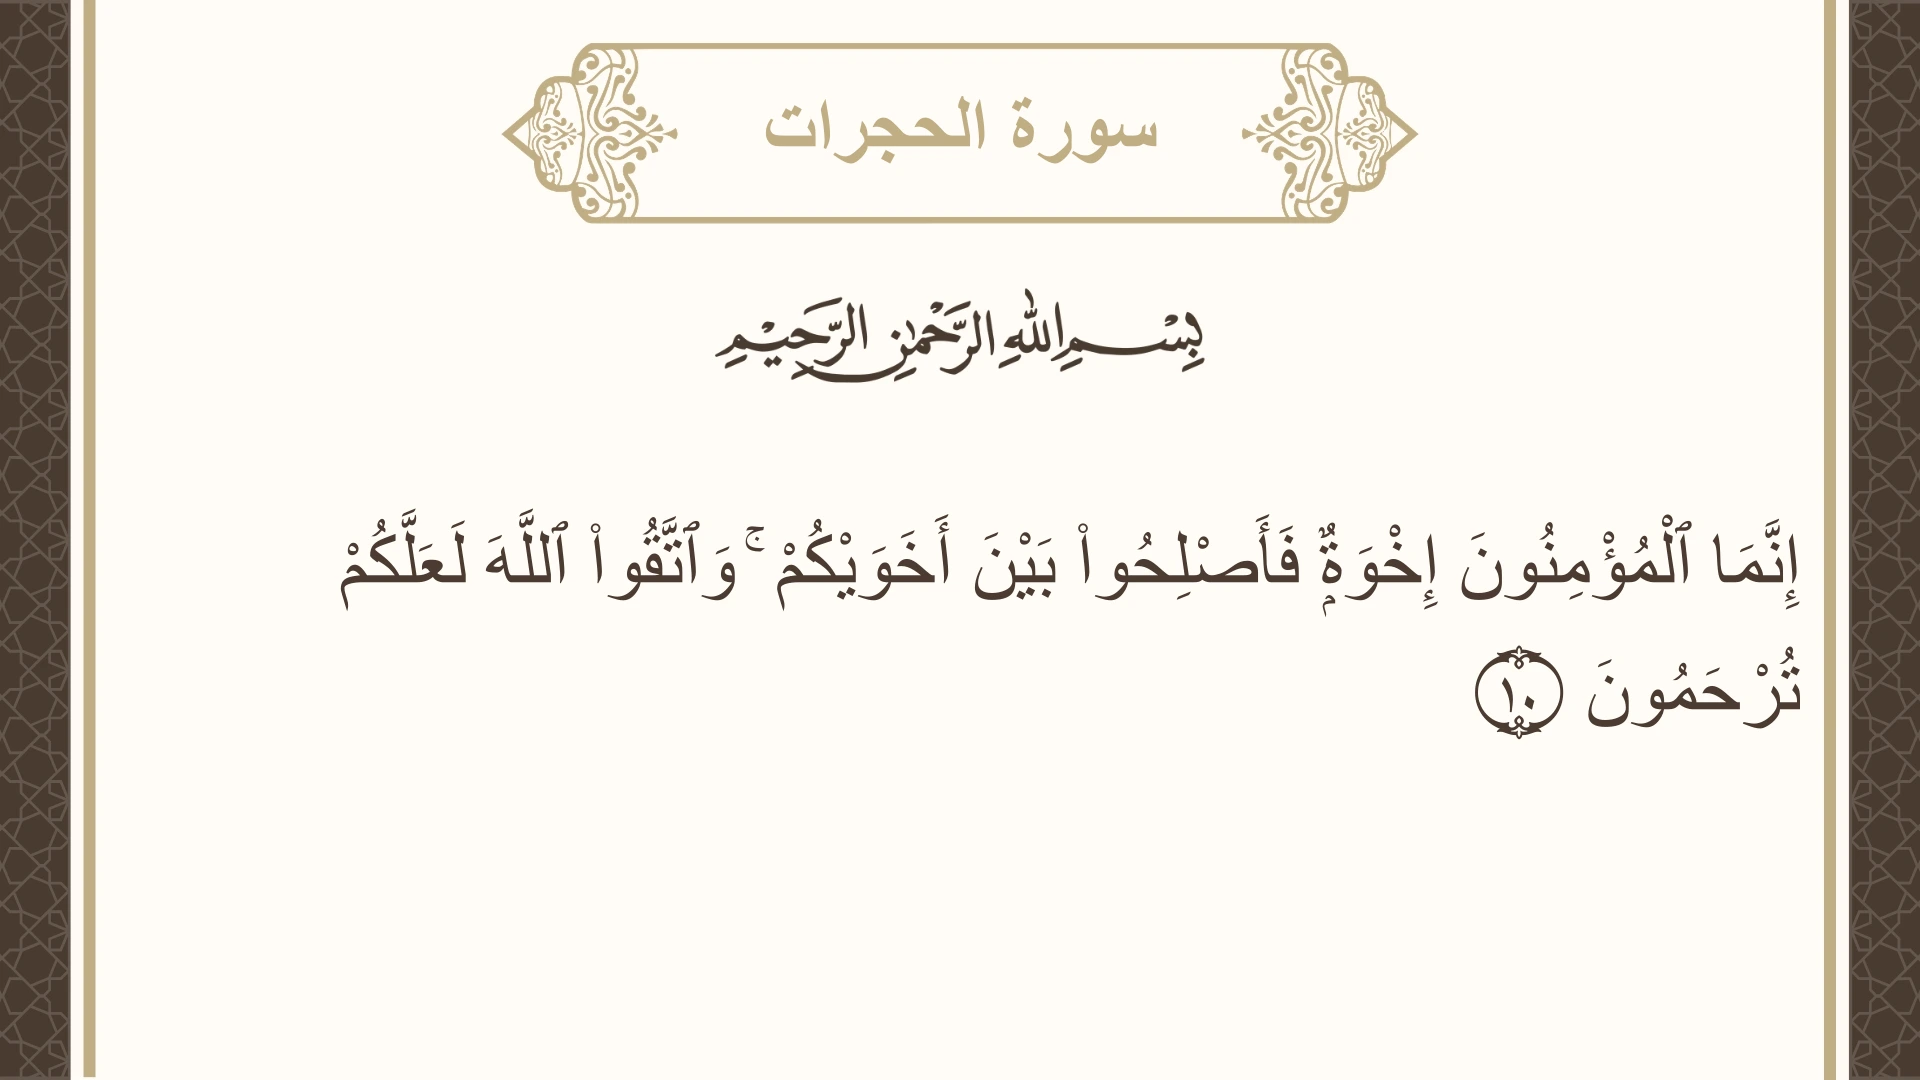 سورة الحجرات
بِسْمِ اللهِ الرَّحْمٰنِ الرَّحِيْمِ
إِنَّمَا ٱلْمُؤْمِنُونَ إِخْوَةٌۭ فَأَصْلِحُوا۟ بَيْنَ أَخَوَيْكُمْ ۚ وَٱتَّقُوا۟ ٱللَّهَ لَعَلَّكُمْ
تُرْحَمُونَ ١٠